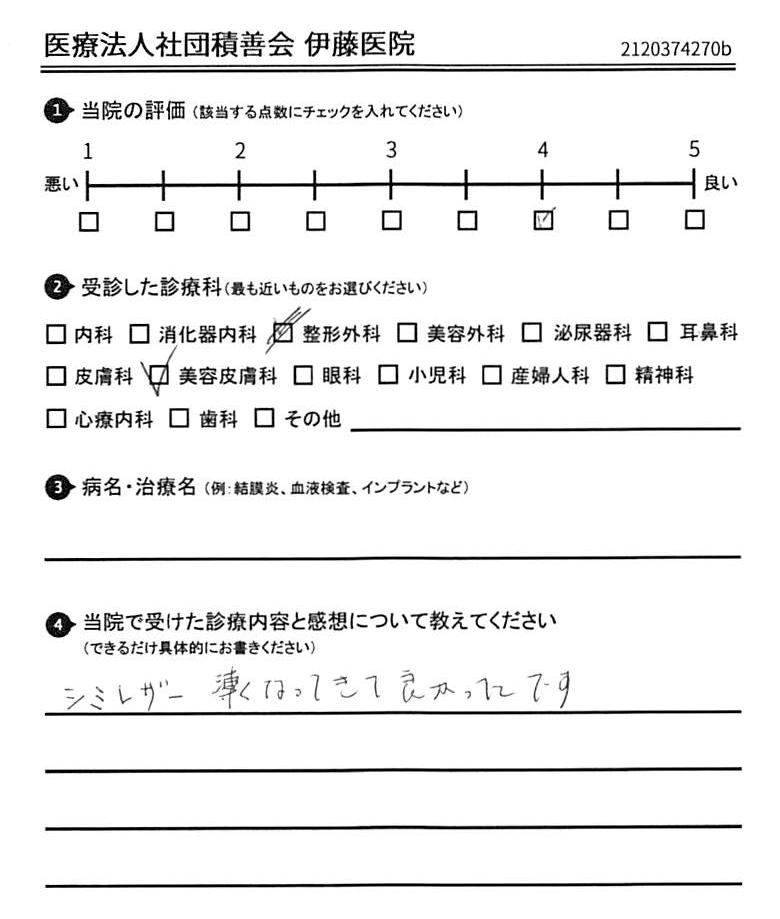 医療法人社団積善会 伊藤医院 2120374270b
1 当院の評価 (該当する点数にチェックを入れてください)
1 2 3 4 5
悪い 良い
☐ ☐ ☐ ☐ ☐ ☐ ☑ ☐ ☐
2 受診した診療科(最も近いものをお選びください)
☐ 内科 ☐ 消化器内科 ☐ 整形外科 ☐ 美容外科 ☐ 泌尿器科 ☐ 耳鼻科
☐ 皮膚科 ☑ 美容皮膚科 ☐ 眼科 ☐ 小児科 ☐ 産婦人科 ☐ 精神科
☐ 心療内科 ☐ 歯科 ☐ その他
3 病名・治療名 (例:結膜炎、血液検査、インプラントなど)
4 当院で受けた診療内容と感想について教えてください
(できるだけ具体的にお書きください)
シミレザー 薄くなってきて良かったです